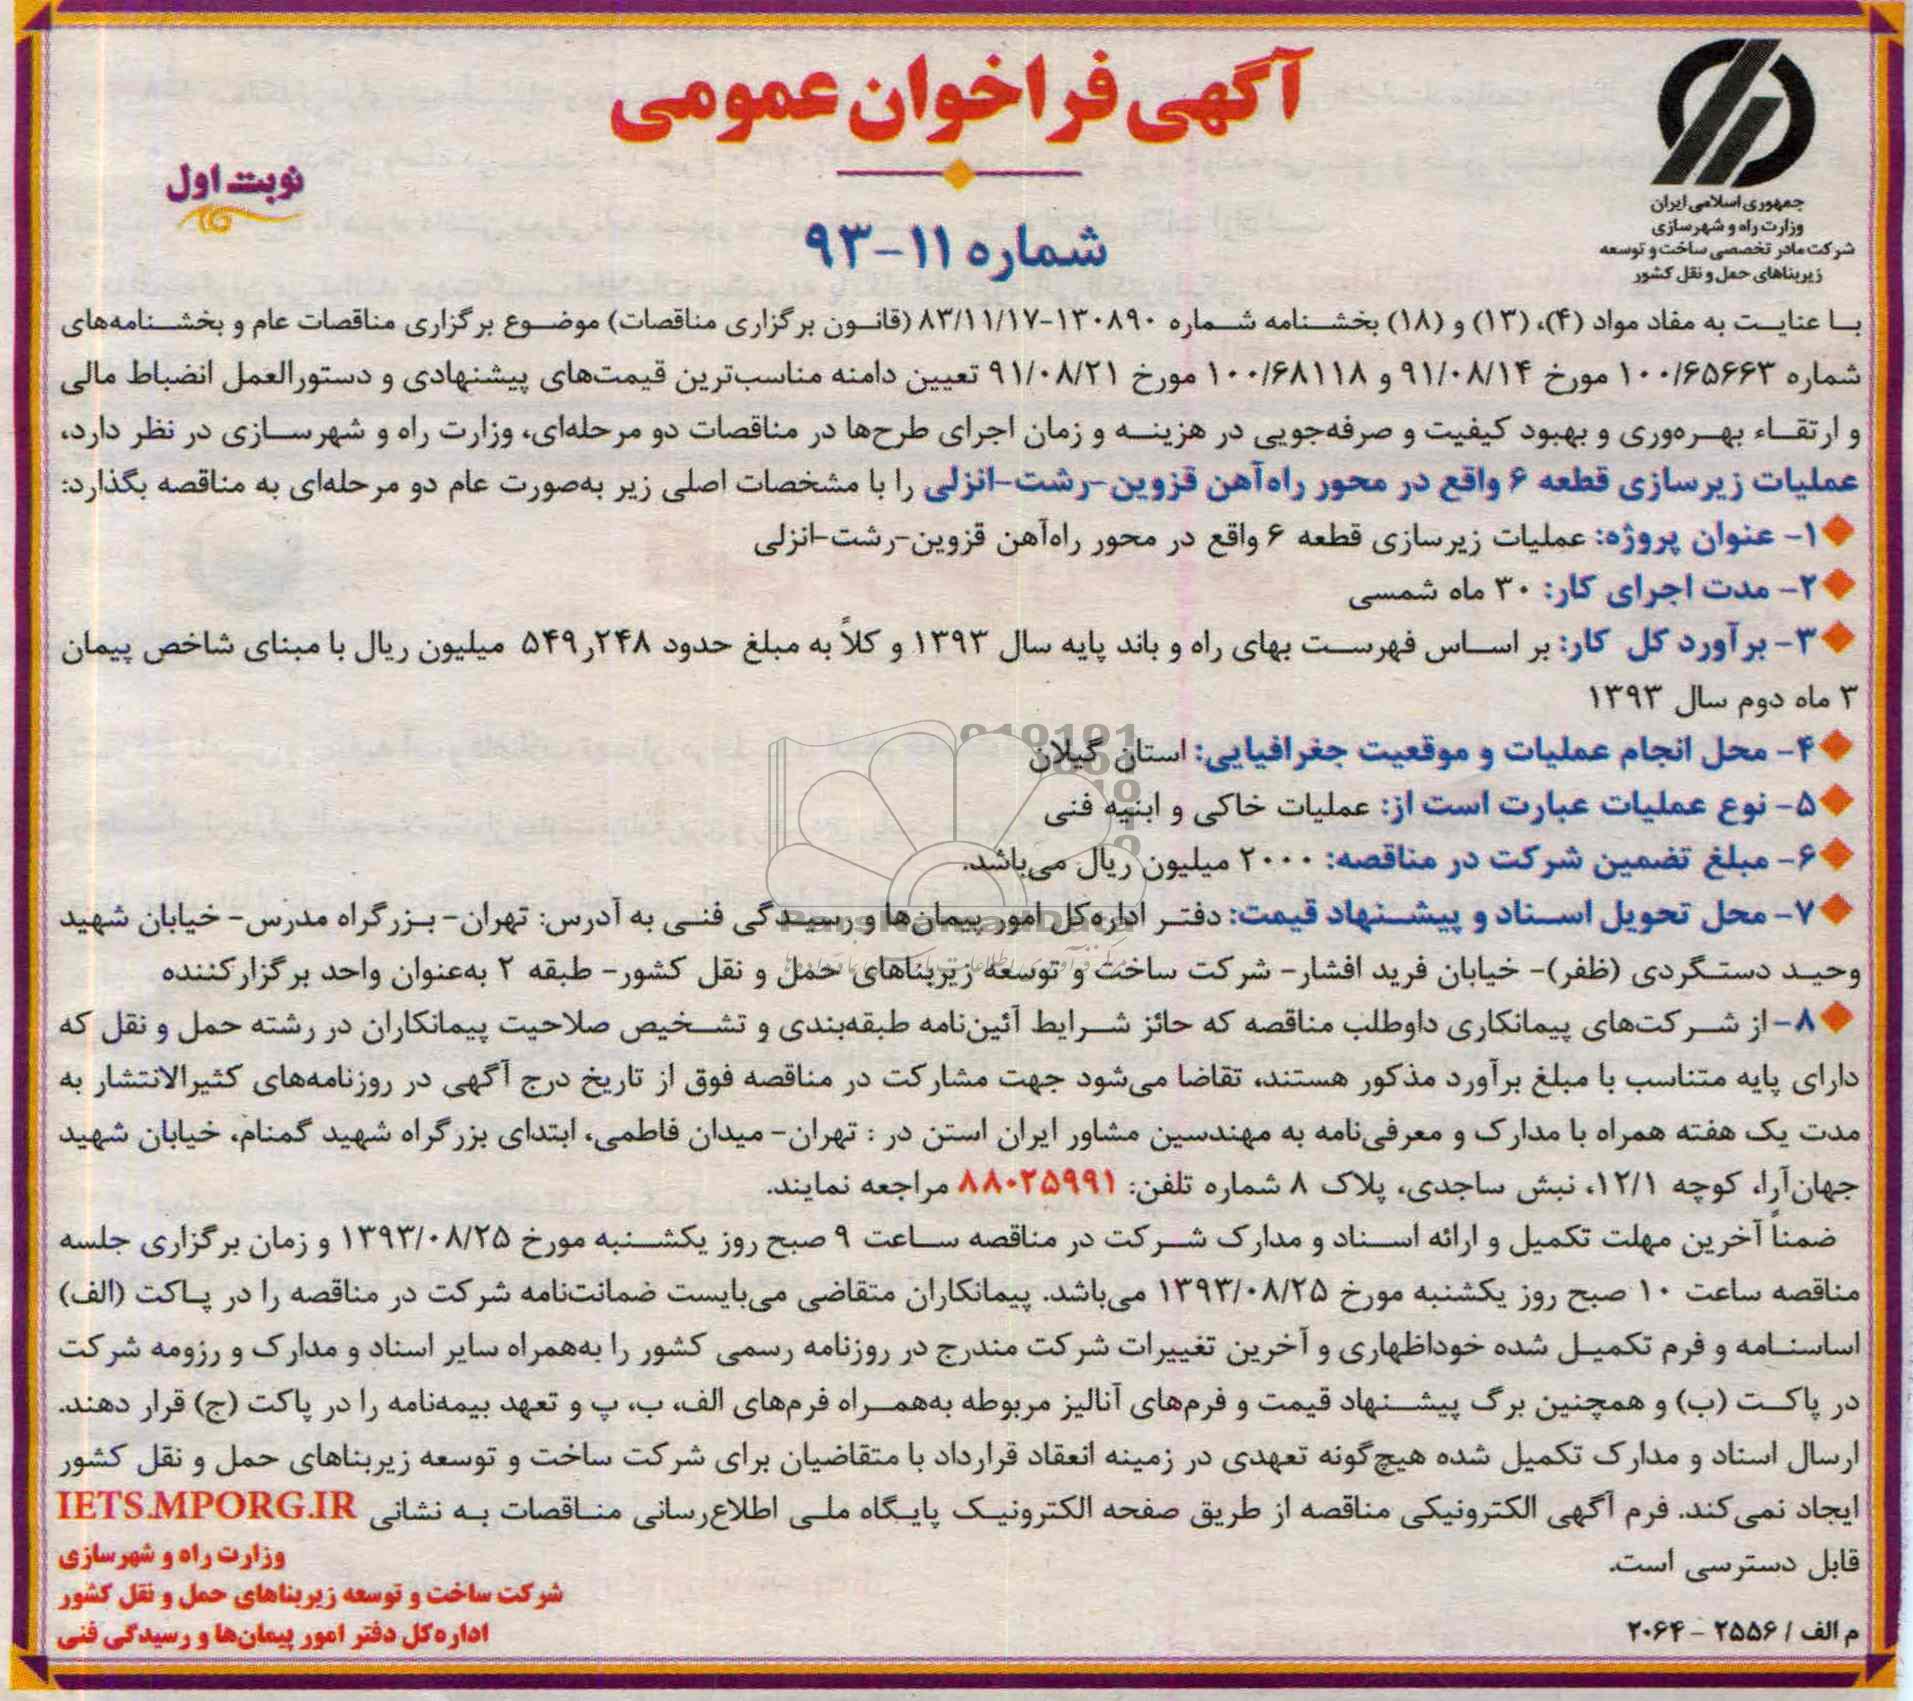 آگهی فراخوان عمومی
نوبت اول
شماره ۱۱-۹۳
جمهوری اسلامی ایران
وزارت راه و شهرسازی
شرکت مادر تخصصی ساخت و توسعه
زیربناهای حمل و نقل کشور
بـا عنایـت به مفاد مواد (۴)، (۱۳) و (۱۸) بخشـنامه شـماره ۱۳۰۸۹۰-۸۳/۱۱/۱۷ (قانـون برگزاری مناقصات) موضـوع برگزاری مناقصات عام و بخشـنامه‌های
شماره ۱۰۰/۶۵۶۶۳ مورخ ۹۱/۰۸/۱۴ و ۱۰۰/۶۸۱۱۸ مورخ ۹۱/۰۸/۲۱ تعیین دامنه مناسب‌ترین قیمت‌های پیشنهادی و دستورالعمل انضباط مالی
و ارتقـاء بهـره‌وری و بهبود کیفیت و صرفه‌جویی در هزینـه و زمان اجرای طرح‌ها در مناقصات دو مرحله‌ای، وزارت راه و شهرسـازی در نظر دارد،
عملیات زیرسازی قطعه ۶ واقع در محور راه‌آهن قزوین-رشت-انزلی را با مشخصات اصلی زیر به‌صورت عام دو مرحله‌ای به مناقصه بگذارد:
۱- عنوان پروژه: عملیات زیرسازی قطعه ۶ واقع در محور راه‌آهن قزوین-رشت-انزلی
۲- مدت اجرای کار: ۳۰ ماه شمسی
۳- برآورد کل کار: بر اسـاس فهرسـت بهای راه و باند پایه سال ۱۳۹۳ و کلاً به مبلغ حدود ۵۴۹٫۲۴۸ میلیون ریال با مبنای شاخص پیمان
۳ ماه دوم سال ۱۳۹۳
۴- محل انجام عملیات و موقعیت جغرافیایی: استان گیلان
۵- نوع عملیات عبارت است از: عملیات خاکی و ابنیه فنی
۶- مبلغ تضمین شرکت در مناقصه: ۲۰۰۰ میلیون ریال می‌باشد.
ParsNamadData
۷- محل تحویل اسـناد و پیشـنهاد قیمت: دفتـر اداره‌کل امور پیمان‌ها و رسیـدگی فنـی به آدرس: تهران- بـزرگراه مدرس- خیابان شهید
وحیـد دستـگردی (ظفر)- خیابان فرید افشار- شرکت ساخت و توسعه زیربناهای حمل و نقل کشور- طبقه ۲ به‌عنوان واحد برگزارکننده
۸- از شـرکت‌های پیمانکاری داوطلب مناقصه که حائز شـرایط آئین‌نامه طبقه‌بندی و تشـخیص صلاحیت پیمانکاران در رشته حمل و نقل که
دارای پایه متناسب با مبلغ برآورد مذکور هستند، تقاضا می‌شود جهت مشارکت در مناقصه فوق از تاریخ درج آگهی در روزنامه‌های کثیرالانتشار به
مدت یک هفته همراه با مدارک و معرفی‌نامه به مهندسین مشاور ایران استن در : تهران- میدان فاطمی، ابتدای بزرگراه شهید گمنام، خیابان شهید
جهان‌آرا، کوچه ۱۲/۱، نبش ساجدی، پلاک ۸ شماره تلفن: ۸۸۰۲۵۹۹۱ مراجعه نمایند.
ضمناً آخرین مهلت تکمیل و ارائه اسـناد و مدارک شـرکت در مناقصه سـاعت ۹ صبح روز یکشـنبه مورخ ۱۳۹۳/۰۸/۲۵ و زمان برگزاری جلسه
مناقصه ساعت ۱۰ صبح روز یکشنبه مورخ ۱۳۹۳/۰۸/۲۵ می‌باشد. پیمانکاران متقاضی می‌بایست ضمانت‌نامه شرکت در مناقصه را در پـاکت (الف)
اساسنـامه و فرم تکمیـل شده خوداظهاری و آخرین تغییرات شرکت مندرج در روزنامه رسمی کشور را به‌همراه سایر اسناد و مدارک و رزومه شرکت
در پاکـت (ب) و همچنین برگ پیشـنهاد قیمت و فرم‌های آنالیز مربوطه به‌همـراه فرم‌های الف، ب، پ و تعهد بیمه‌نامه را در پاکت (ج) قرار دهند.
ارسال اسناد و مدارک تکمیل شده هیچ‌گونه تعهدی در زمینه انعقاد قرارداد با متقاضیان برای شرکت ساخت و توسعه زیربناهای حمل و نقل کشور
ایجاد نمی‌کند. فرم آگهی الکترونیکی مناقصه از طریق صفحه الکترونیـک پایـگاه ملـی اطلاع‌رسانی منـاقصات بـه نشانی IETS.MPORG.IR
قابل دسترسی است.
وزارت راه و شهرسازی
شرکت ساخت و توسعه زیربناهای حمل و نقل کشور
اداره‌کل دفتر امور پیمان‌ها و رسیدگی فنی
م الف / ۲۵۵۶ - ۲۰۶۴